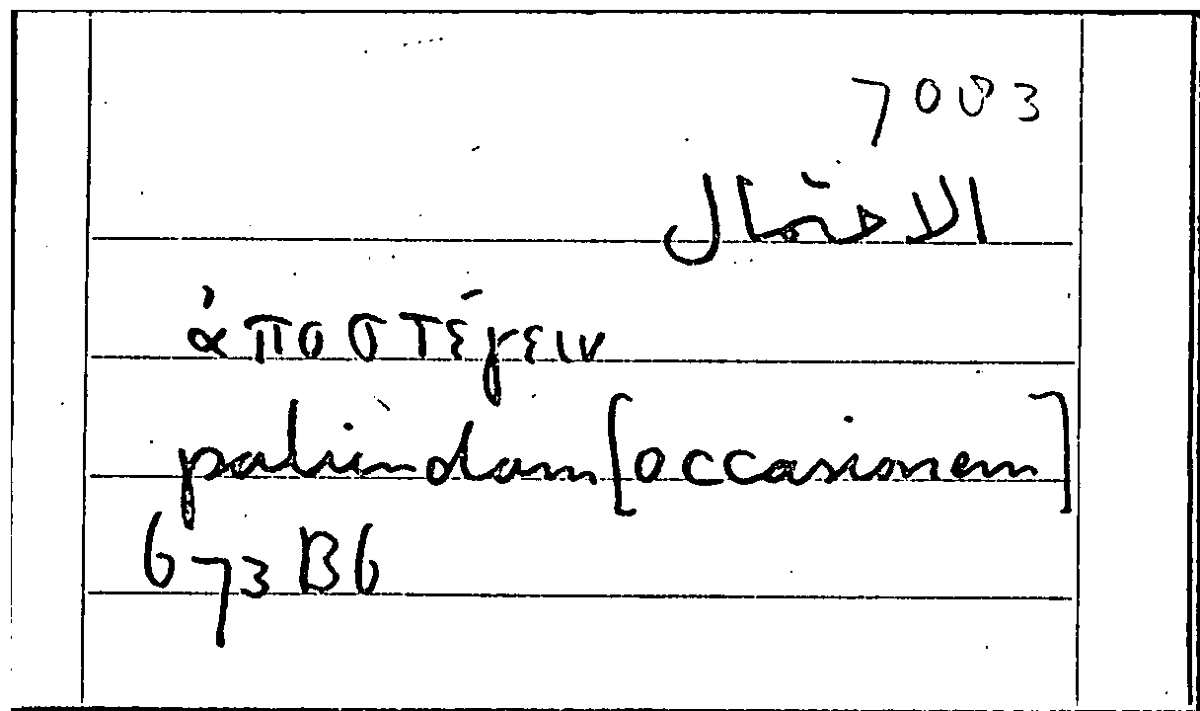 7003
الاحتمال
ἀποστέγειν
patiendam [occasionem]
673 B6